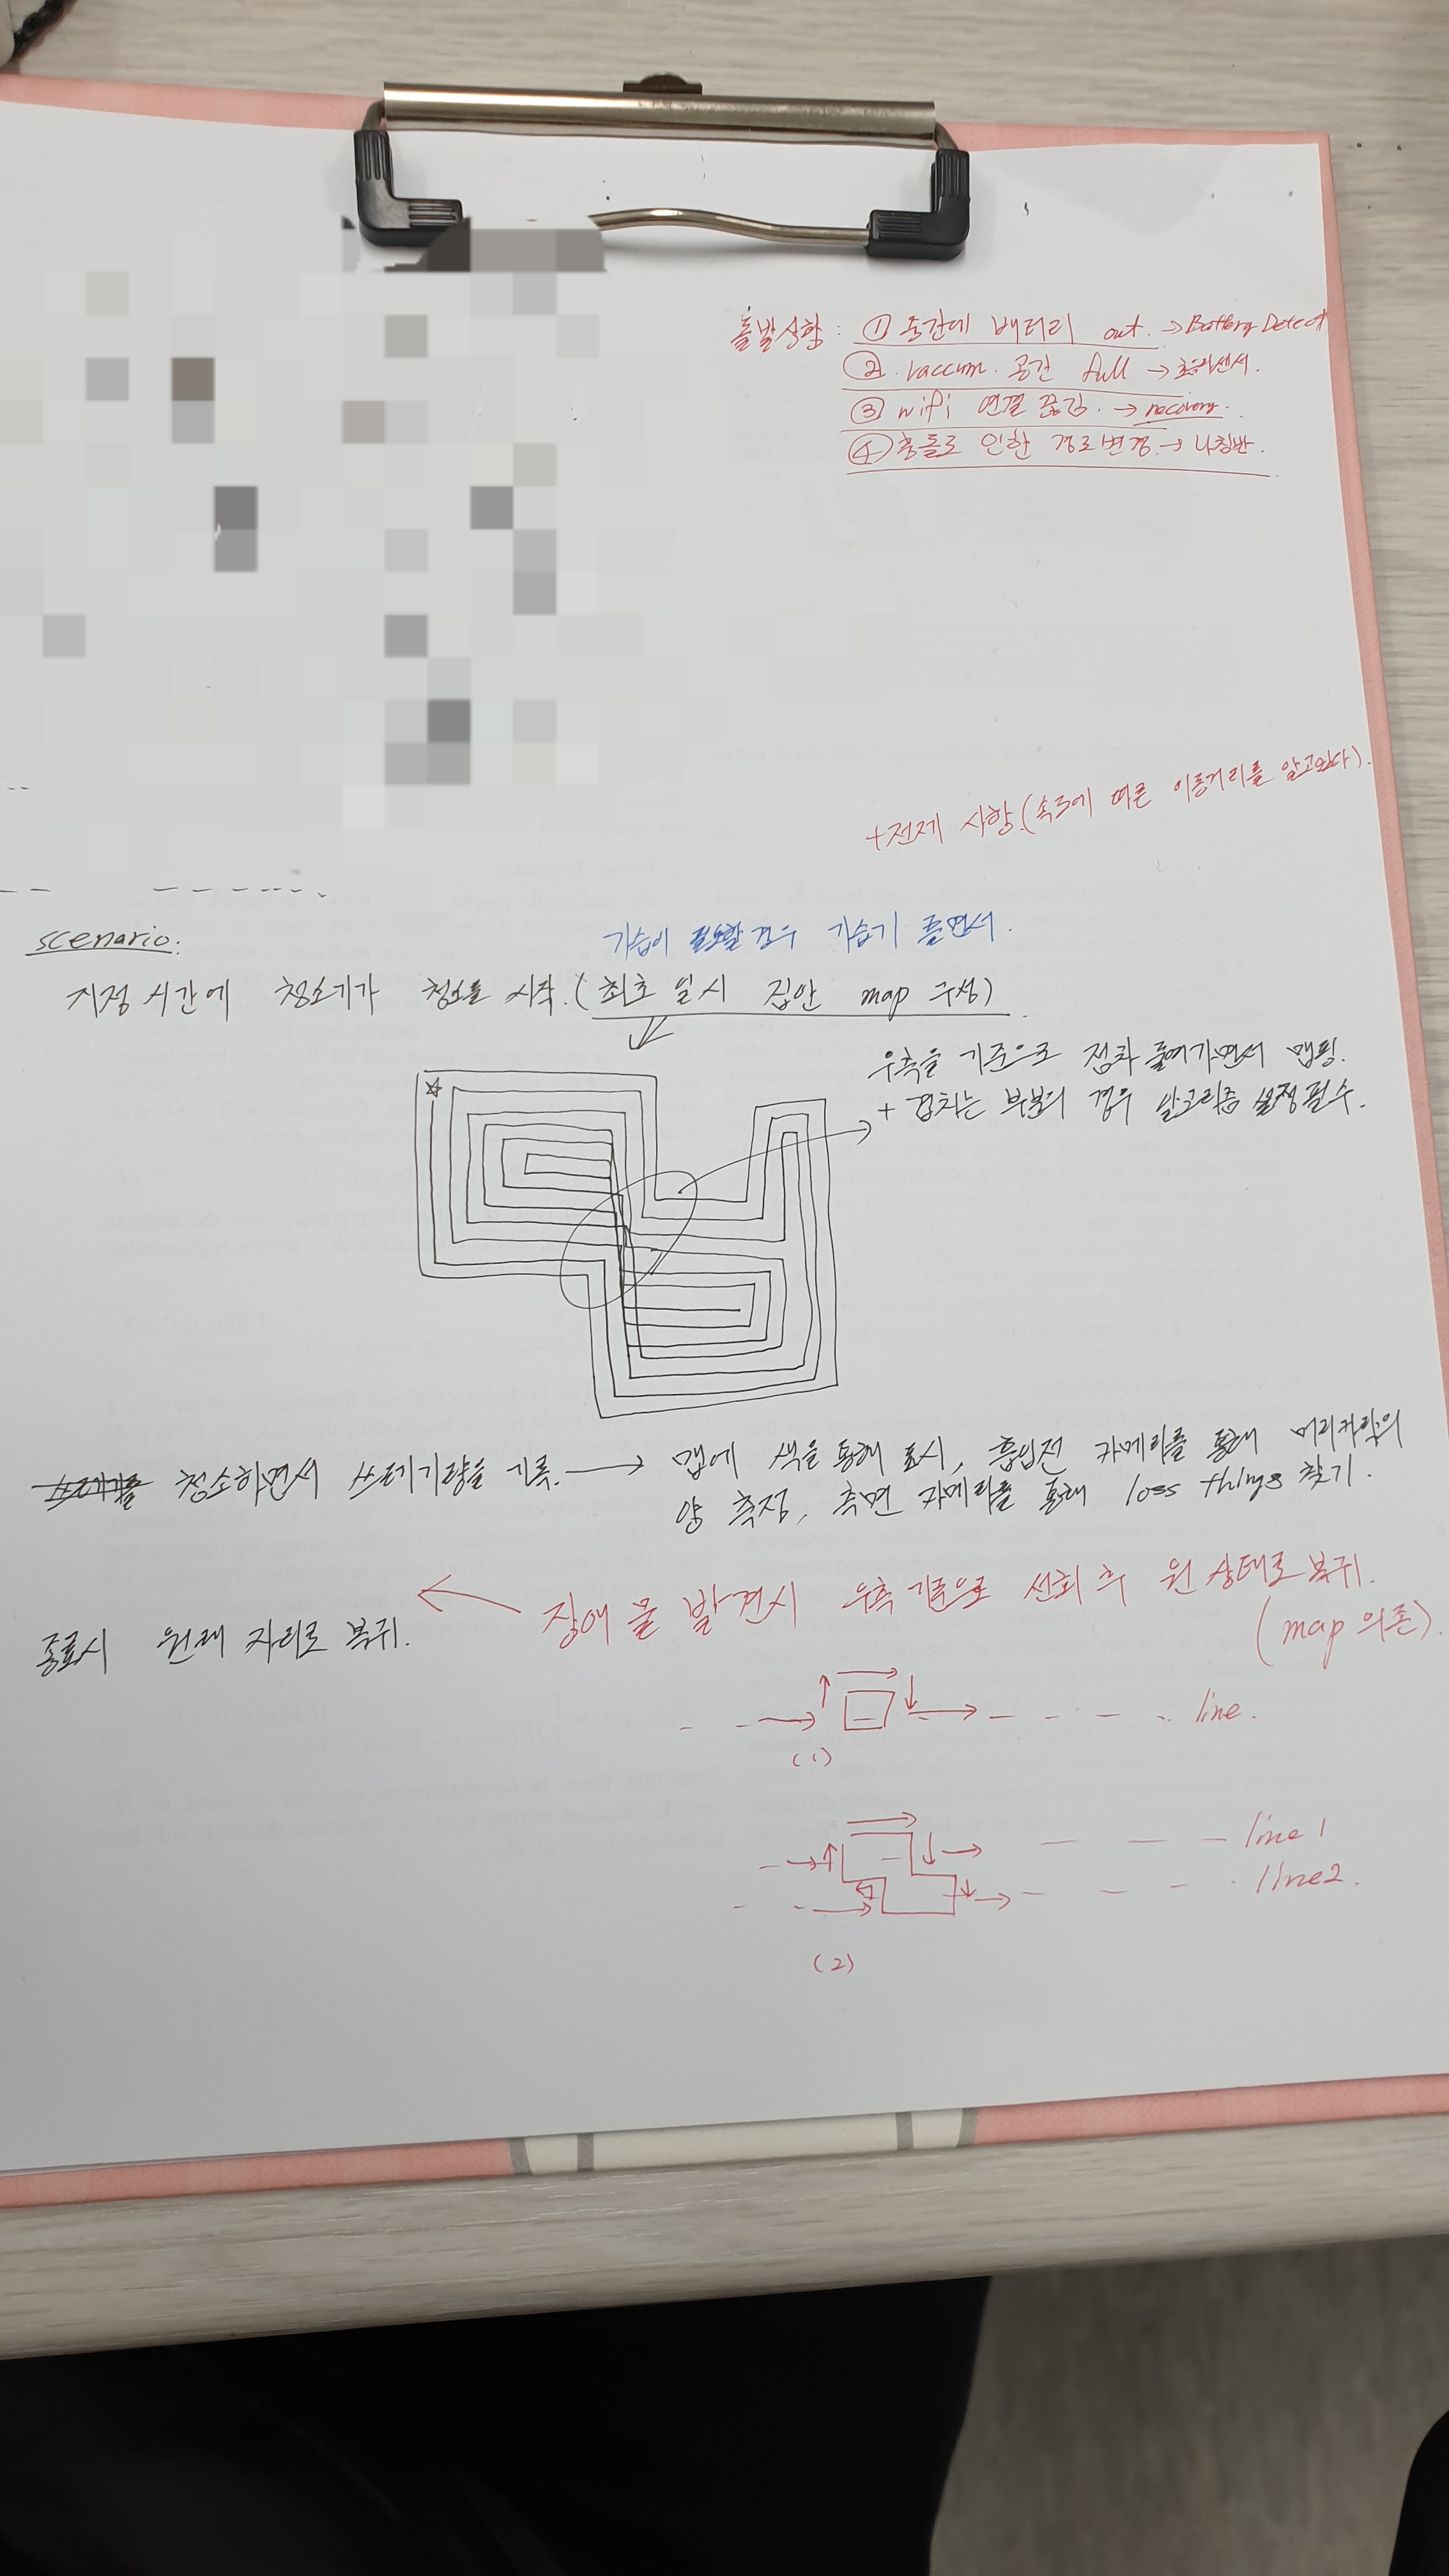 돌발상황 : ① 중간에 배터리 out. → Battery Detect
② vaccum. 공간 full → 초음파센서.
③ wifi 연결 끊김. → recovery.
④ 충돌로 인한 경로변경 → 나침반.
+전제 사항.(속도에 따른 이동거리를 알고있다).
scenario:
가습이 필요할 경우 가습기 틀면서.
지정 시간에 청소기가 청소를 시작. (최초 일시 집안 map 구성)
우측을 기준으로 점차 줄여가면서 맵핑.
+ 겹치는 부분의 경우 알고리즘 설정 필수.
청소하면서 쓰레기량을 기록. → 맵에 색을 통해 표시, 흡입전 카메라를 통해 머리카락의
양 측정, 측면 카메라를 통해 loss things 찾기.
장애물 발견시 우측 기준으로 선회 후 원 상태로 복귀.
(map 의존).
종료시 원래 자리로 복귀.
line.
(1)
line 1
line 2.
(2)